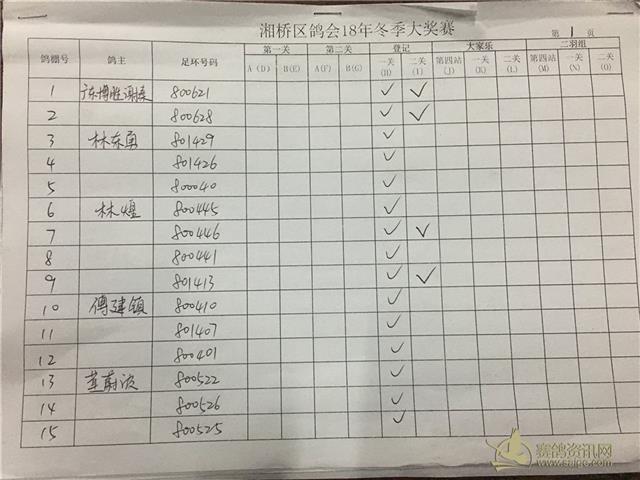 湘桥区鸽会18年冬季大奖赛
第 1 页
鸽棚号 鸽主 足环号码 第一关 第二关 登记 大家乐 二羽组
A(D) B(E) A(F) B(G) 一关(H) 二关(I) 第四站(J) 一关(K) 二关(L) 第四站(M) 一关(N) 二关(O)
1 广东博胜 800621 ✓ ✓
2 800628 ✓ ✓
3 林东勇 801429 ✓
4 801426 ✓
5 800040 ✓
6 林煜 800445 ✓
7 800446 ✓ ✓
8 800441 ✓
9 801413 ✓ ✓
10 傅建镇 800410 ✓
11 801407 ✓
12 800401 ✓
13 800522 ✓
14 800526 ✓
15 800525 ✓
赛鸽资讯网
www.saipg.com